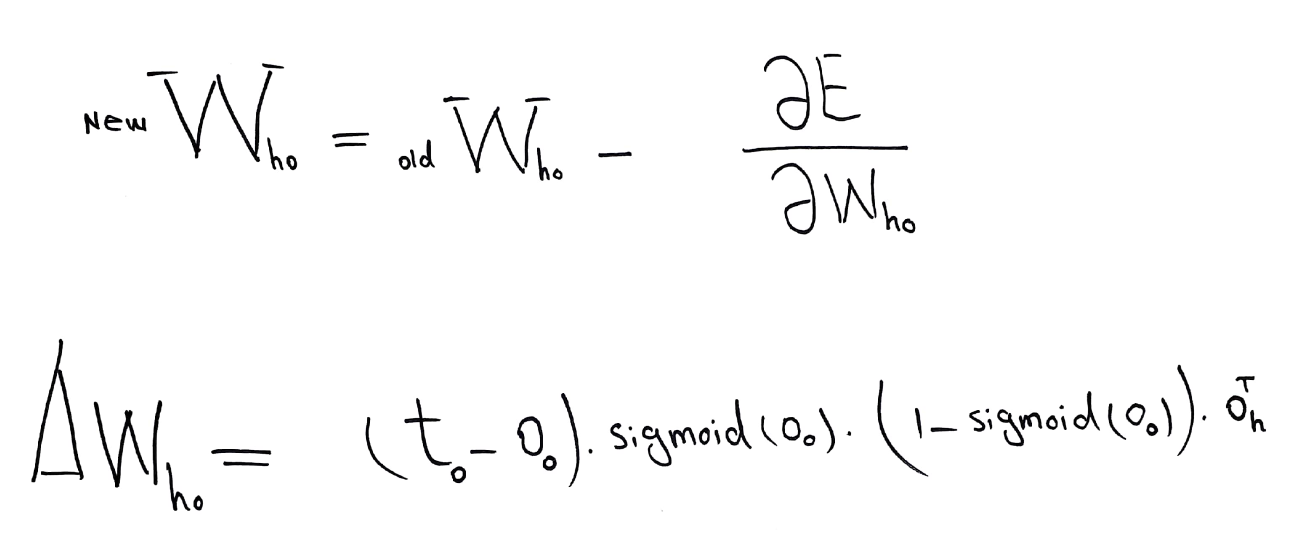 New W_ho = old W_ho − ∂E/∂W_ho
ΔW_ho = (t_o − O_o) . sigmoid(O_o) . (1 − sigmoid(O_o)) . O_h^T